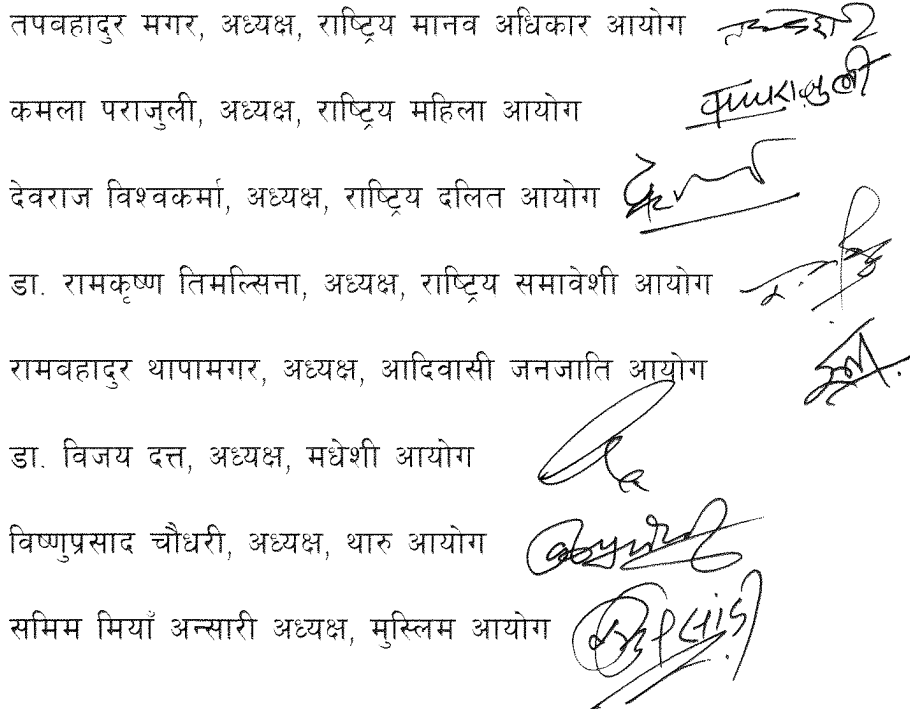 तपवहादुर मगर, अध्यक्ष, राष्ट्रिय मानव अधिकार आयोग
कमला पराजुली, अध्यक्ष, राष्ट्रिय महिला आयोग
देवराज विश्वकर्मा, अध्यक्ष, राष्ट्रिय दलित आयोग
डा. रामकृष्ण तिमल्सिना, अध्यक्ष, राष्ट्रिय समावेशी आयोग
रामवहादुर थापामगर, अध्यक्ष, आदिवासी जनजाति आयोग
डा. विजय दत्त, अध्यक्ष, मधेशी आयोग
विष्णुप्रसाद चौधरी, अध्यक्ष, थारु आयोग
समिम मियाँ अन्सारी अध्यक्ष, मुस्लिम आयोग